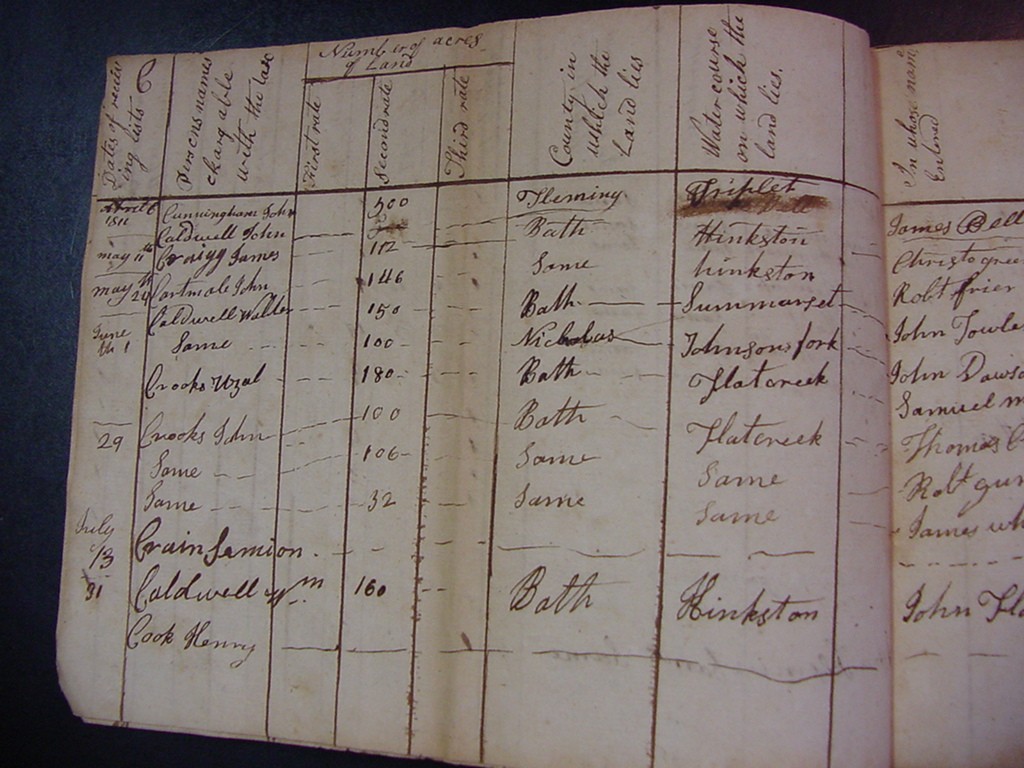 Dates of receiving lists C
Persons names chargable with the tax
Number of acres of Land
First rate
Second rate
Third rate
County in which the Land lies
Water course on which the land lies.
In whose name Entered
April 6 1811 Cunningham John 500 Fleming Triplet
Caldwell John Bath Hinkston James Bell
may 11th Craigg James 112 Same hinkston
may th 24 Cartmale John 146 Bath Summarset Robt frier
Caldwell Walter 150 Nicholas Johnsons fork John Towle
June th 1 Same 100 Bath Flatcreek John Daws
Crooks Uzal 180 Bath Flatcreek Samuel m
29 Crooks John 100 Same Same Thomas
Same 106 Same Same Robt gun
Same 32 James wh
July 13 Crain Semion
31 Caldwell Wm 160 Bath Hinkston John Fl
Cook Henry